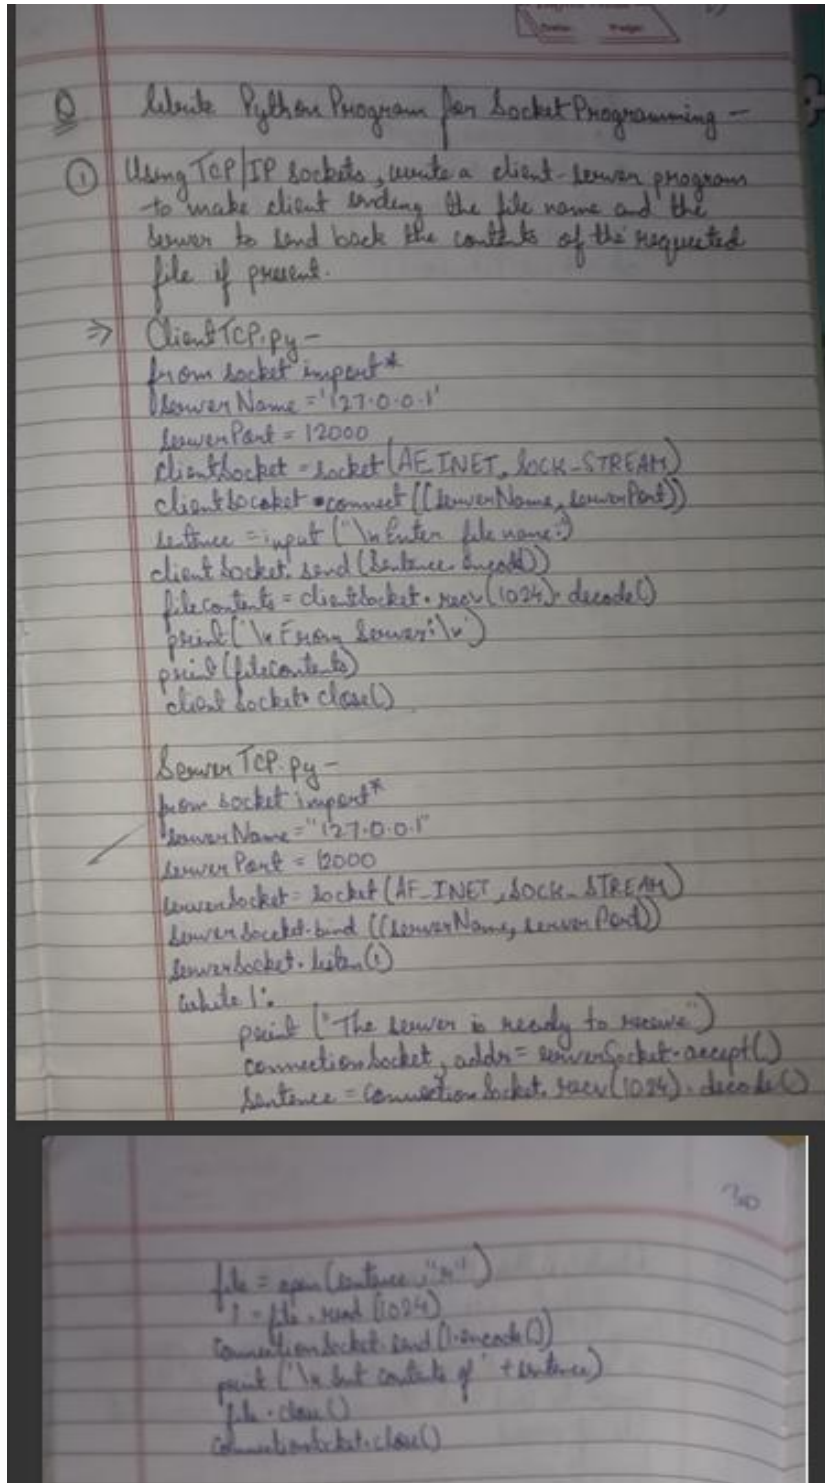 Q Write Python Program for Socket Programming -
① Using TCP/IP sockets, write a client-server program
to make client sending the file name and the
server to send back the contents of the requested
file if present.
⇒ ClientTCP.py -
from socket import*
serverName = '127.0.0.1'
serverPort = 12000
clientSocket = socket(AF_INET, SOCK_STREAM)
clientSocoket.connect((serverName, serverPort))
sentence = input("\nEnter file name:")
clientSocket.send(sentence.encode())
filecontents = clientSocket.recv(1024).decode()
print('\nFrom Server:\n')
print(filecontents)
clientSocket.close()
ServerTCP.py -
from socket import*
serverName = "127.0.0.1"
serverPort = 12000
serverSocket = socket(AF_INET, SOCK_STREAM)
serverSocket.bind((serverName, serverPort))
serverSocket.listen(1)
while 1:
print("The server is ready to receive")
connectionSocket, addr = serverSocket.accept()
sentence = connectionSocket.recv(1024).decode()
file = open(sentence, "r")
l = file.read(1024)
connectionSocket.send(l.encode())
print('\n sent contents of ' + sentence)
file.close()
connectionSocket.close()